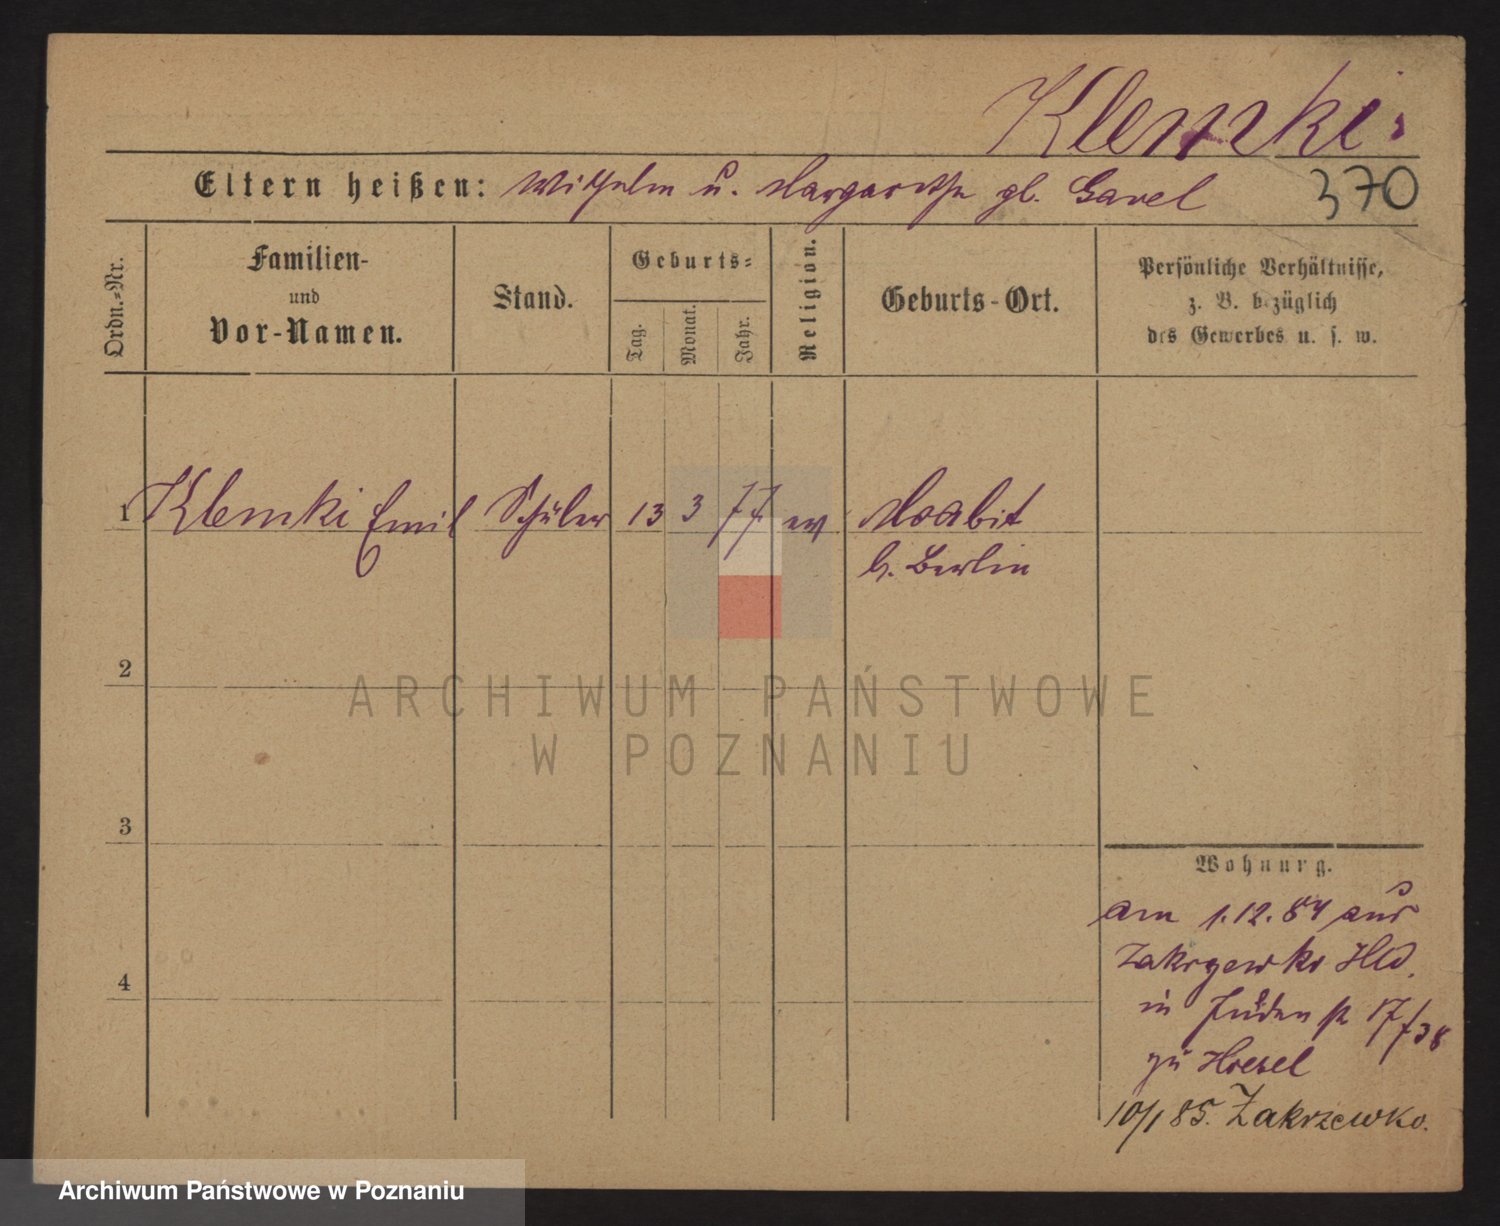 Klemki
Eltern heißen: Wilhelm u. Margarethe gb. Gavel 370
Ordn.-Nr.
Familien-
und
Vor-Namen.
Stand.
Geburts-
Tag.
Monat.
Jahr.
Religion.
Geburts-Ort.
Persönliche Verhältnisse,
z. B. bezüglich
des Gewerbes u. s. w.
1 Klemki Emil Schüler 13 3 77 ev Moabit
b. Berlin
2
ARCHIWUM PAŃSTWOWE
W POZNANIU
3
Wohnung.
am 1.12.84 aus
Zakrzewko Hld.
in Juden str 17/38
zu
4
10/1 85. Zakrzewko.
Archiwum Państwowe w Poznaniu